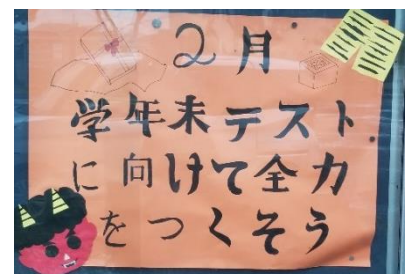 2月
学年末テスト
に向けて全力
をつくそう